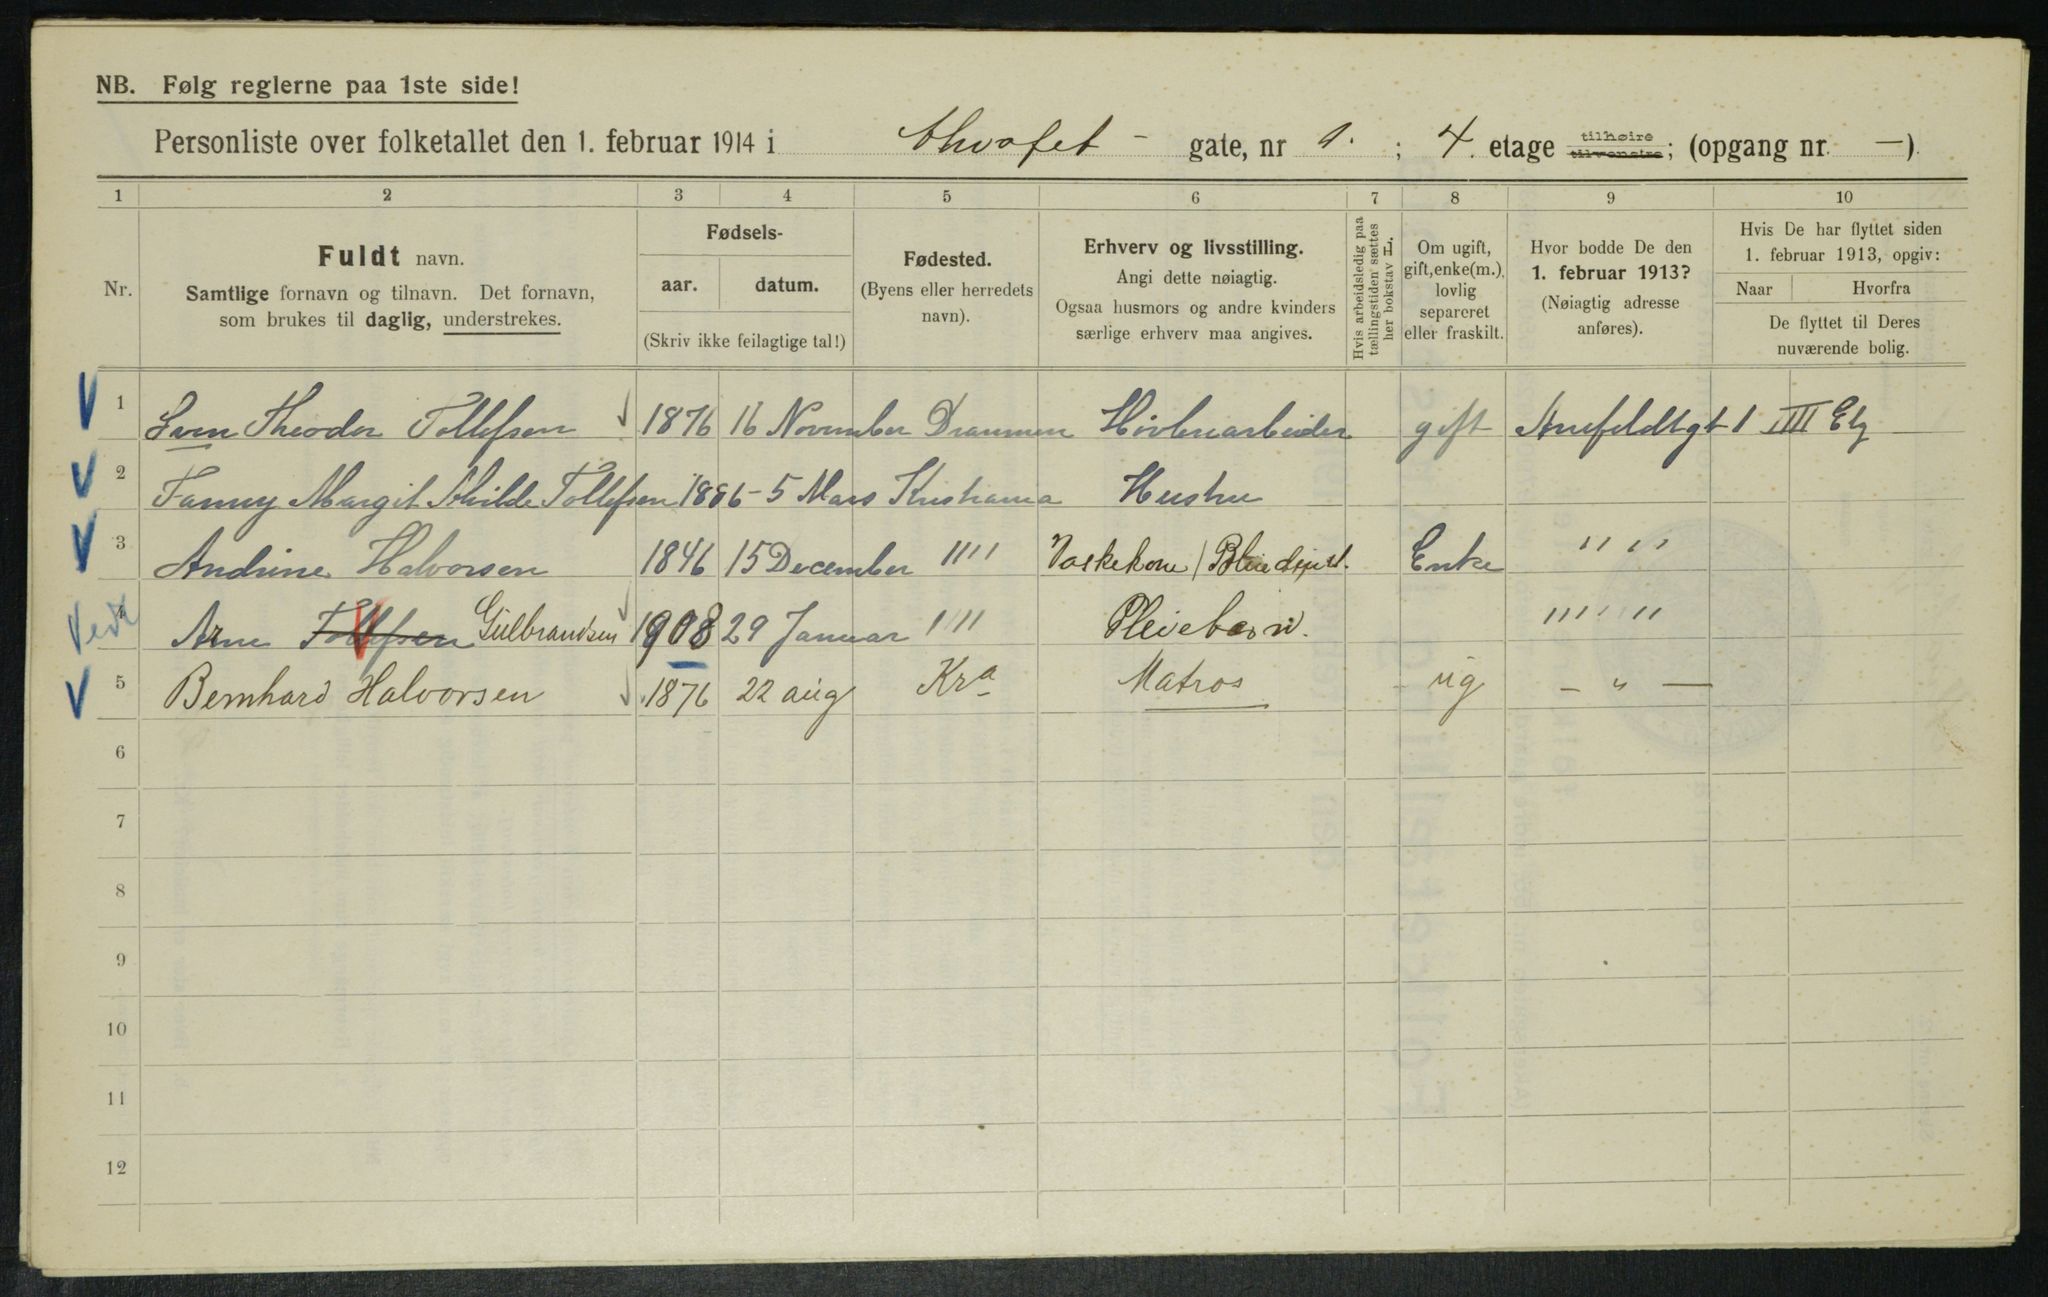 NB. Følg reglerne paa 1ste side!
Personliste over folketallet den 1. februar 1914 i - gate, nr 1. ; 4. etage tilhøire tilvenstre; (opgang nr. —).
1 2 3 4 5 6 7 8 9 10
Nr.
Fuldt navn.
Samtlige fornavn og tilnavn. Det fornavn,
som brukes til daglig, understrekes.
Fødsels-
aar. datum.
(Skriv ikke feilagtige tal!)
Fødested.
(Byens eller herredets
navn).
Erhverv og livsstilling.
Angi dette nøiagtig.
Ogsaa husmors og andre kvinders
særlige erhverv maa angives.
Hvis arbeidsledig paa
tællingstiden sættes
her bokstav L.
Om ugift,
gift, enke(m.),
lovlig
separeret
eller fraskilt.
Hvor bodde De den
1. februar 1913?
(Nøiagtig adresse
anføres).
Hvis De har flyttet siden
1. februar 1913, opgiv:
Naar Hvorfra
De flyttet til Deres
nuværende bolig.
1 Sven Theodor Tollefsen 1876 16 November Drammen Høvleriarbeider gift 1 IIII Etg
2 Fanny Margit Tollefsen 1886 - 5 Mars Kristiania Hustru
3 Andrine Halvorsen 1846 15 December '''' Vaskekone / Enke '' ''
4 Arne Tollefsen Gulbrandsen 1908 29 Januar '''' Pleiebarn. '' '' ''
5 Bernhard Halvorsen 1876 22 aug Kra Matros ug – " —
6
7
8
9
10
11
12